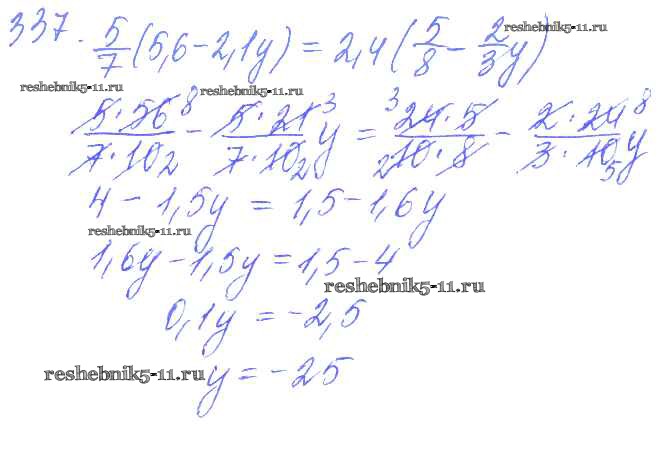 337. 5/7 (5,6 - 2,1y) = 2,4 (5/8 - 2/3 y)
reshebnik5-11.ru
reshebnik5-11.ru
reshebnik5-11.ru
5·56 8 / 7·10 2 - 5·21 3 / 7·10 2 y = 3 24·5 / 2 10·8 - 2·24 8 / 3·10 5 y
4 - 1,5y = 1,5 - 1,6y
reshebnik5-11.ru
1,6y - 1,5y = 1,5 - 4
reshebnik5-11.ru
0,1y = -2,5
reshebnik5-11.ru
y = -25